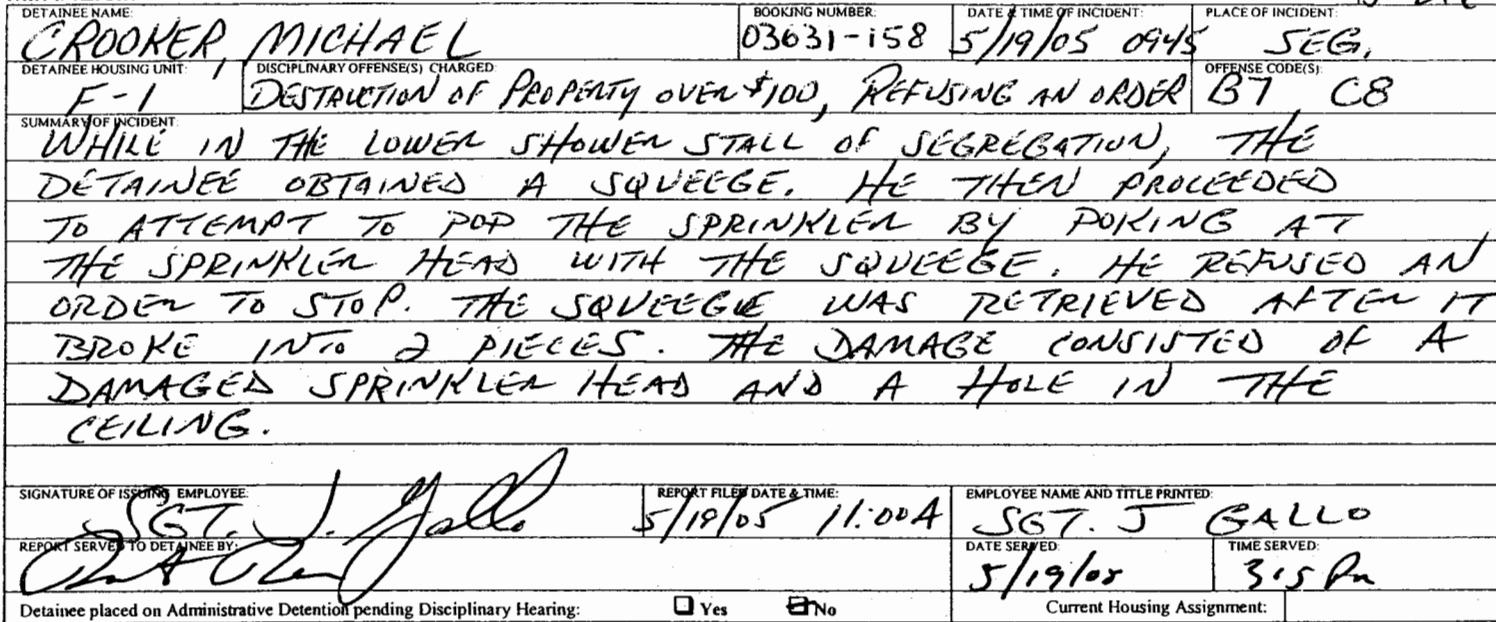 DETAINEE NAME: BOOKING NUMBER: DATE & TIME OF INCIDENT: PLACE OF INCIDENT:
CROOKER, MICHAEL 03631-158 5/19/05 0945 SEG.
DETAINEE HOUSING UNIT: DISCIPLINARY OFFENSE(S) CHARGED: OFFENSE CODE(S):
F-1 DESTRUCTION OF PROPERTY OVER $100, REFUSING AN ORDER B7 C8
SUMMARY OF INCIDENT:
WHILE IN THE LOWER SHOWER STALL OF SEGREGATION, THE
DETAINEE OBTAINED A SQUEEGE. HE THEN PROCEEDED
TO ATTEMPT TO POP THE SPRINKLER BY POKING AT
THE SPRINKLER HEAD WITH THE SQUEEGE. HE REFUSED AN
ORDER TO STOP. THE SQUEEGIE WAS RETRIEVED AFTER IT
BROKE INTO 2 PIECES. THE DAMAGE CONSISTED OF A
DAMAGED SPRINKLER HEAD AND A HOLE IN THE
CEILING.
SIGNATURE OF ISSUING EMPLOYEE: REPORT FILED DATE & TIME: EMPLOYEE NAME AND TITLE PRINTED:
SGT. J. Gallo 5/19/05 11:00A SGT. J GALLO
REPORT SERVED TO DETAINEE BY: DATE SERVED: TIME SERVED:
5/19/05 315 Pm
Detainee placed on Administrative Detention pending Disciplinary Hearing: Yes No Current Housing Assignment: